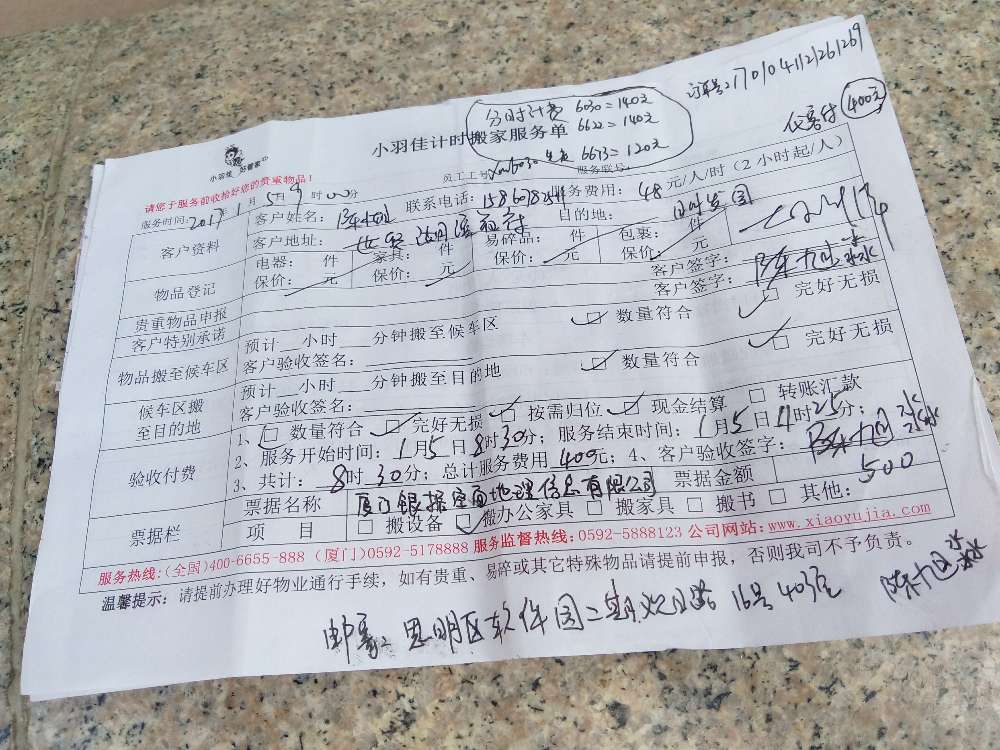 订单号:17010411212261269
分时计费 6030=140元
6622=140元
6673=120元
400元
小羽佳 好管家
小羽佳计时搬家服务单
请您于服务前收拾好您的贵重物品!
员工工号
服务联号:
服务时间:2017年1月5日9时00分
联系电话:
服务费用:48元/人/时(2小时起/人)
客户资料
客户姓名:
目的地:
客户地址:
物品登记
电器: 件 家具: 件 易碎品: 件 包裹: 件
保价: 元 保价: 元 保价: 元 元
客户签字:
贵重物品申报
客户签字:
客户特别承诺
物品搬至候车区
预计 小时 分钟搬至候车区 数量符合 完好无损
客户验收签名:
候车区搬至目的地
预计 小时 分钟搬至目的地 数量符合 完好无损
客户验收签名:
验收付费
1、 数量符合 完好无损 按需归位 现金结算 转账汇款
2、服务开始时间:1月5日8时30分;服务结束时间:1月5日11时25分;
3、共计:8时30分;总计服务费用400元;4、客户验收签字:
票据栏
票据名称 票据金额 500
项 目 搬设备 搬办公家具 搬家具 搬书 其他:
服务热线:(全国)400-6655-888 (厦门)0592-5178888 服务监督热线:0592-5888123 公司网站:www.xiaoyujia.com
温馨提示:请提前办理好物业通行手续,如有贵重、易碎或其它特殊物品请提前申报,否则我司不予负责。
思明区软件园二期望海路16号403